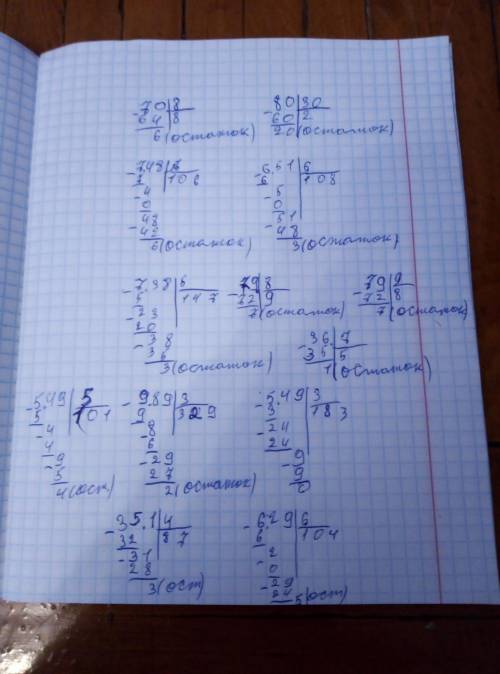 -70|8
64|8
6(остаток)
-80|30
60|2
20(остаток)
-748|
7|106
-4
0
-48
-42
6(остаток)
-6.51|6
6|108
-5
0
51
-48
3(остаток)
-738|5
5|147
-23
20
-38
35
3(остаток)
-79|8
72|9
7(остаток)
-79|9
72|8
7(остаток)
-36|7
35|5
1(остаток)
-5.49|5
5|101
-4
4
-9
5
4(ост)
-9.89|3
9|329
-8
6
-29
27
2(остаток)
-5.49|3
3|183
-24
24
-9
9
0
-35.1|4
32|87
-31
28
3(ост)
-6.29|6
6|104
-2
0
-29
24
5(ост)